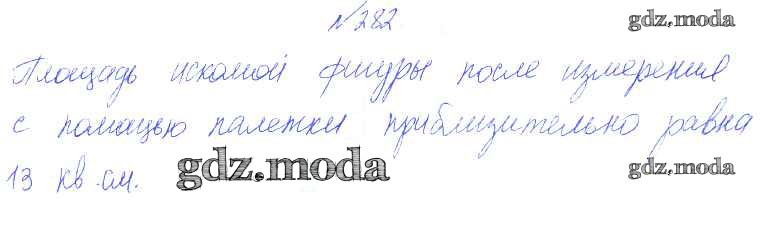 №282.
gdz.moda
Площадь искомой фигуры после измерения
с помощью палетки приблизительно равна
13 кв.см. gdz.moda
gdz.moda